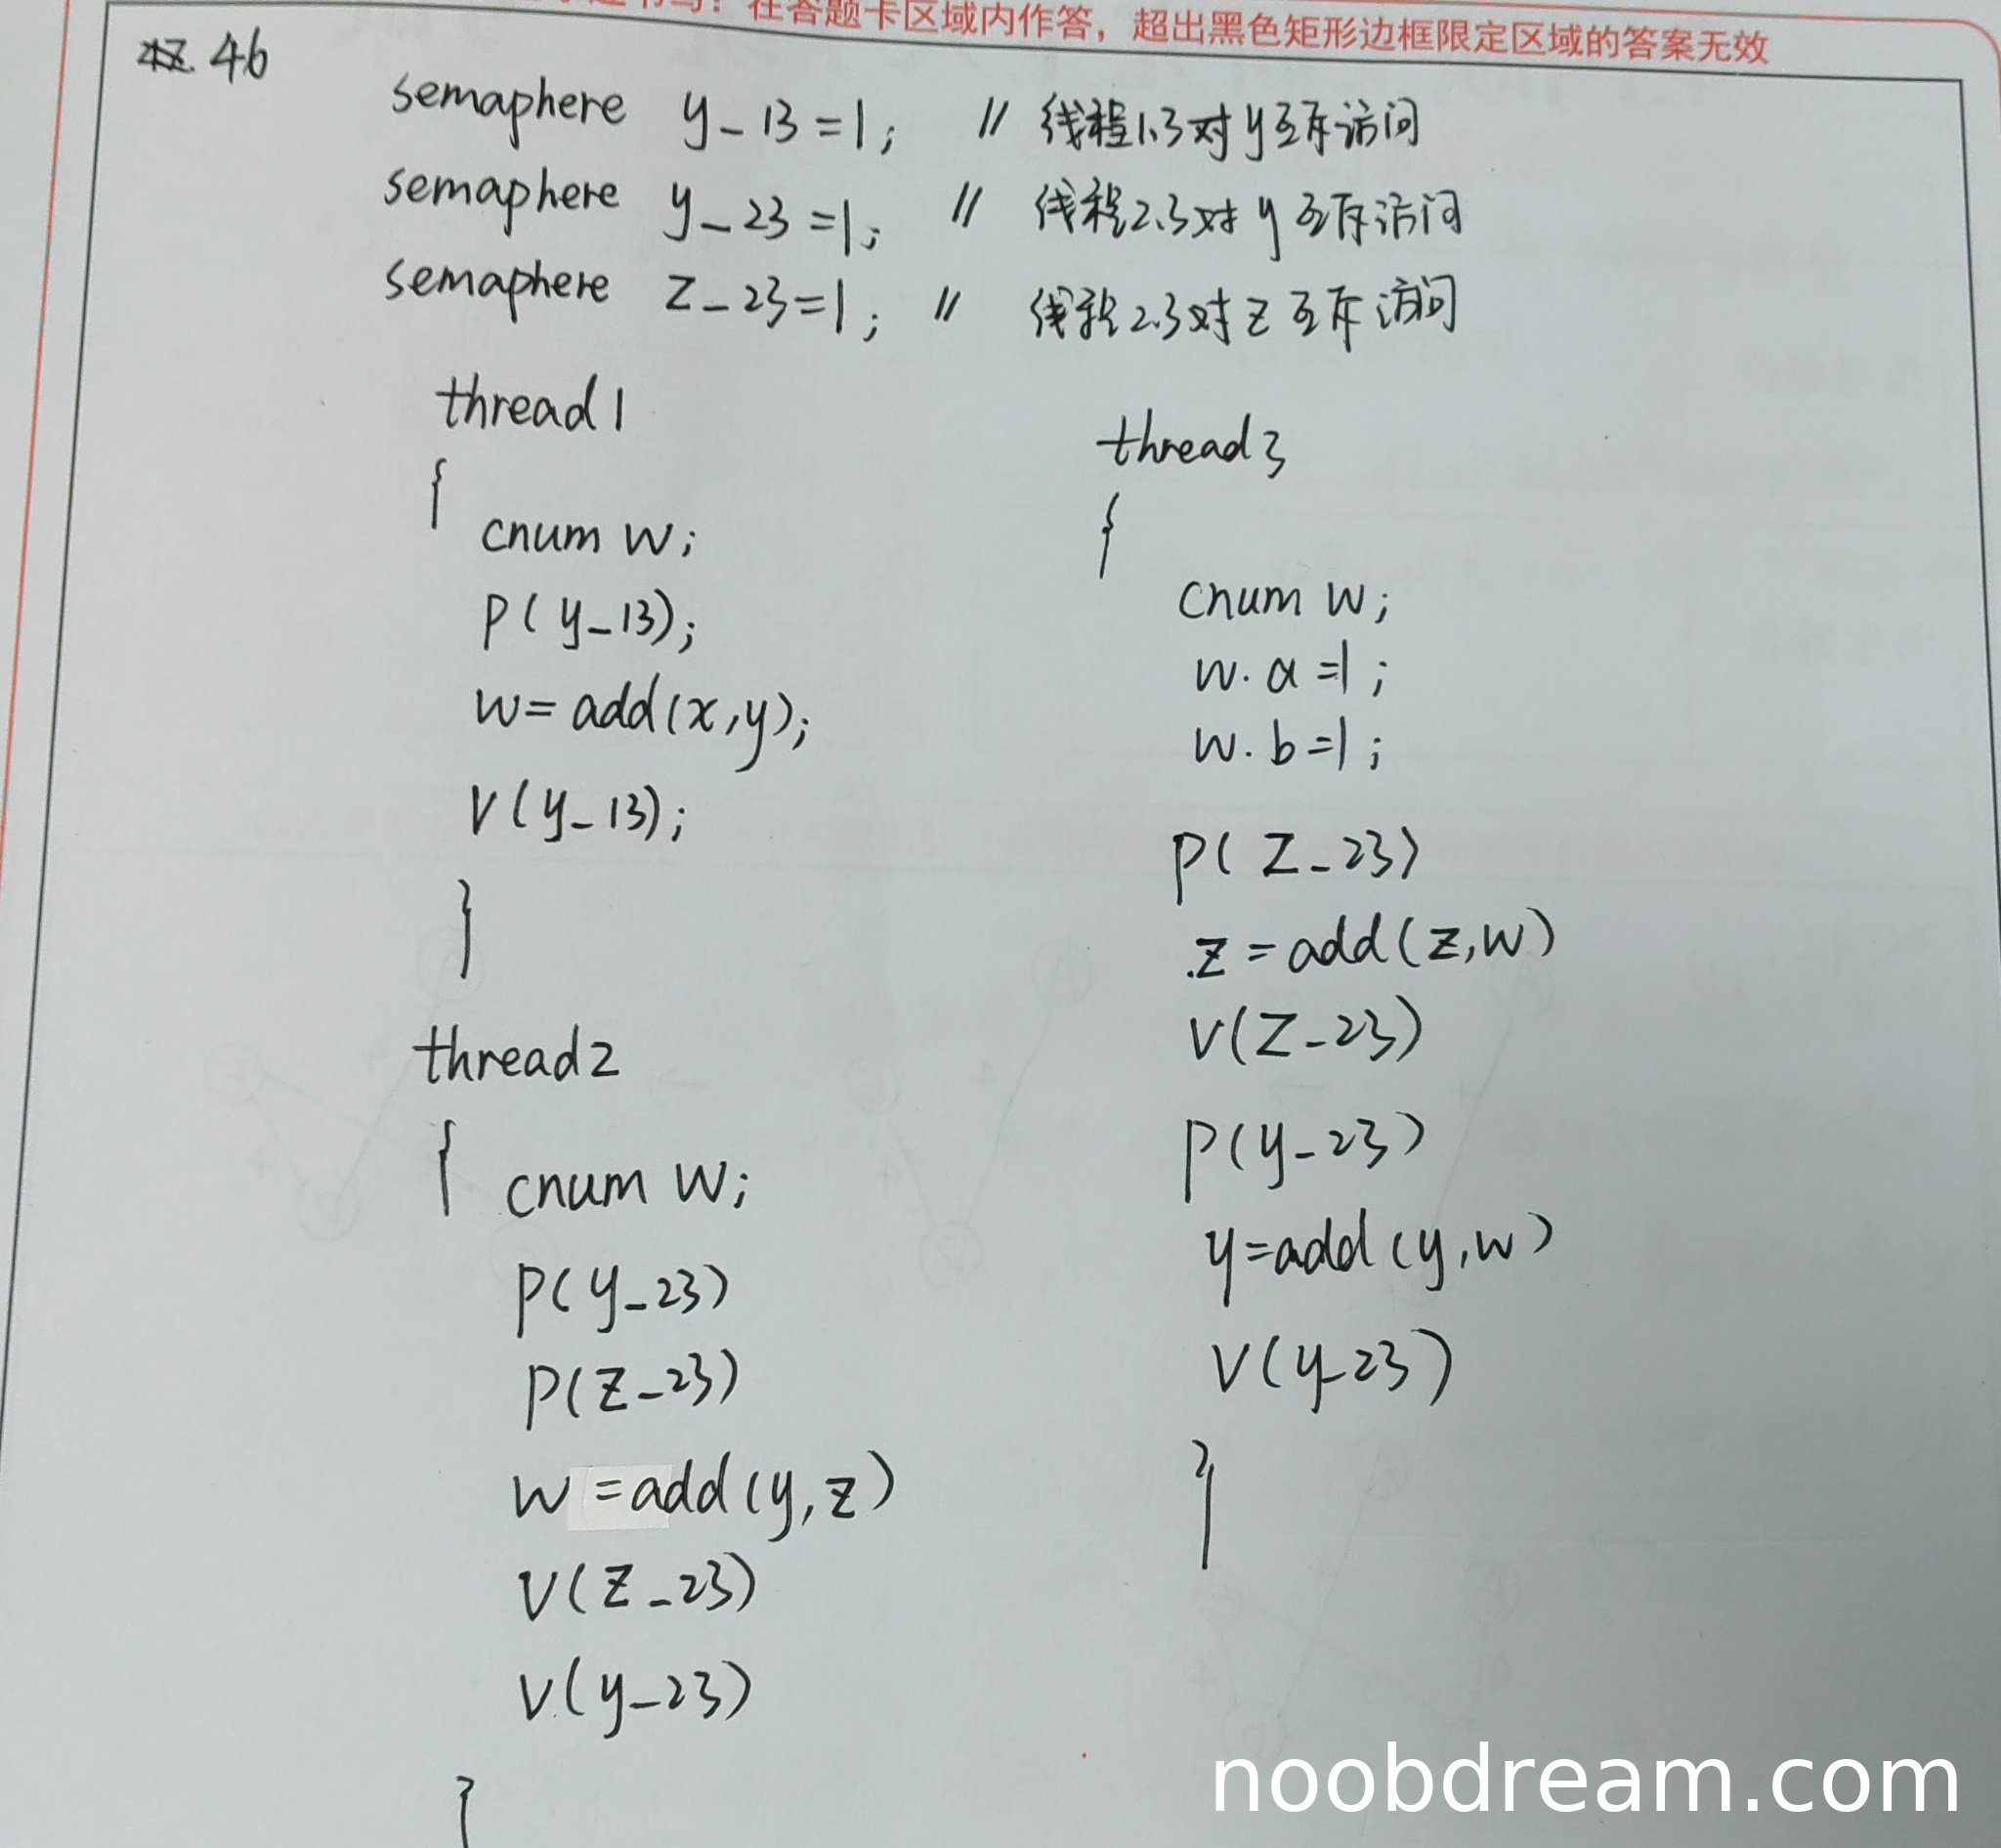 在答题卡区域内作答，超出黑色矩形边框限定区域的答案无效
46
semaphere y_13=1; // 线程1.3对y互斥访问
semaphere y_23=1; // 线程2.3对y互斥访问
semaphere z_23=1; // 线程2.3对z互斥访问
thread1
{
cnum w;
P(y_13);
w=add(x,y);
V(y_13);
}
thread2
{ cnum w;
P(y_23)
P(z_23)
w=add(y,z)
V(z_23)
V(y_23)
}
thread3
{
cnum w;
w.a=1;
w.b=1;
P(z_23)
z=add(z,w)
V(z_23)
P(y_23)
y=add(y,w)
V(y_23)
}
noobdream.com